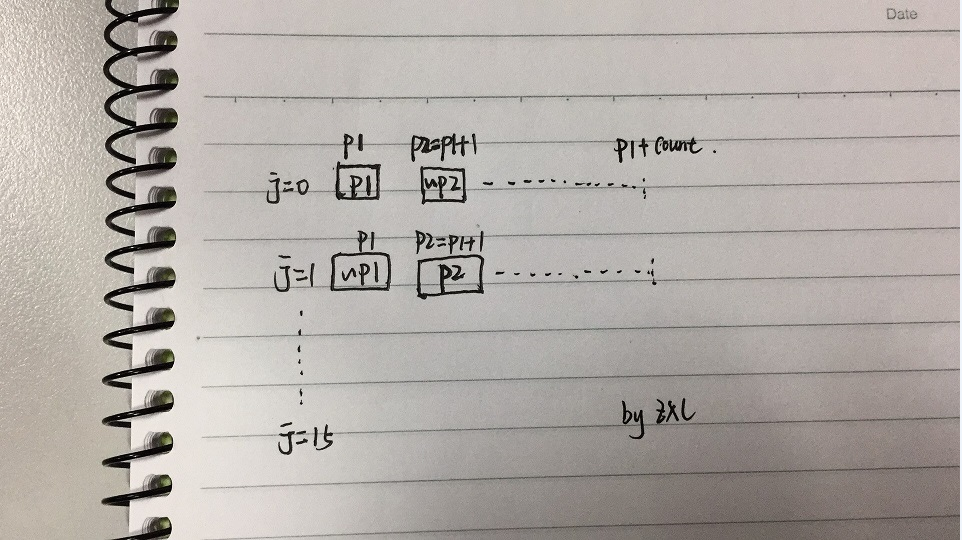 Date
p1 p2=p1+1 p1+count.
j=0 p1 np2
p1 p2=p1+1
j=1 np1 p2
j=15
by zxl